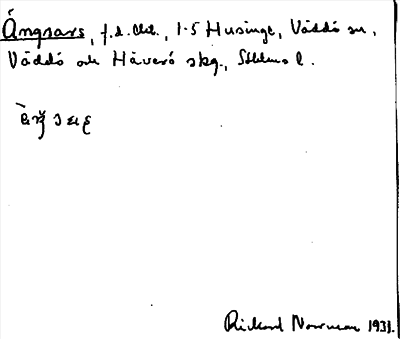 Ängsars, f.d. lht., 1-5 Husinge, Väddö sn,
Väddö och Häverö skg., Sthlms l.
Rickard Norrman 1931.